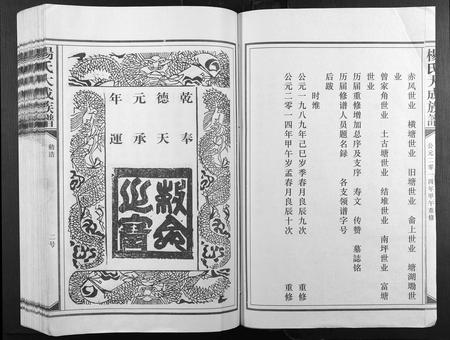 楊氏大成族譜
公元二零一四年甲午重修
赤风世业 横塘世业 旧塘世业 畲上世业 塘湖塝世
业
曾家角世业 土古塘世业 结堆世业 南坪世业 富塘
世业
历届重修增加总序及支序 寿文 传赞 墓誌铭
历届修谱人员题名录 各支领谱字号
后跋
时维
公元一九八九年己巳岁季春月良辰九次 重修
公元二零一四年甲午岁孟春月良辰十次 重修
乾德元年
奉天承運
敕命之寶
楊氏大成族譜
勅浩
二号